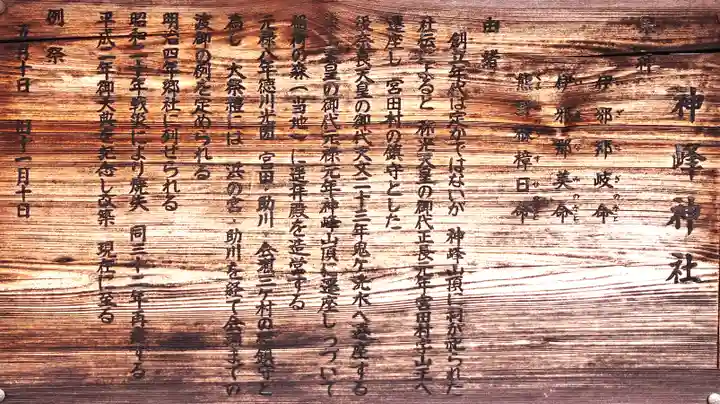 神峰神社
祭神
伊邪那岐命
伊邪那美命
熊野櫲樟日命
由緒
創立年代は定かではないが 神峰山頂に祠が祀られた
社伝によると 称光天皇の御代正長元年宮田村字山王へ
遷座し 宮田村の鎮守とした
後奈良天皇の御代天文二十三年鬼ヶ洗水へ遷座する
天皇の御代元禄元年神峰山頂に遷座し つづいて
の森(当地)に遥拝殿を造営する
元禄八年徳川光圀 宮田 助川 会瀬三ヶ村の総鎮守と
為し 大祭禮には 浜の宮 助川を経て会瀬までの
渡御の例を定められる
明治四年郷社に列せられる
昭和二十年戦災により焼失 同三十二年再建する
平成二年御大典を記念し改築 現在に至る
例祭
五月十日 旧十一月十日